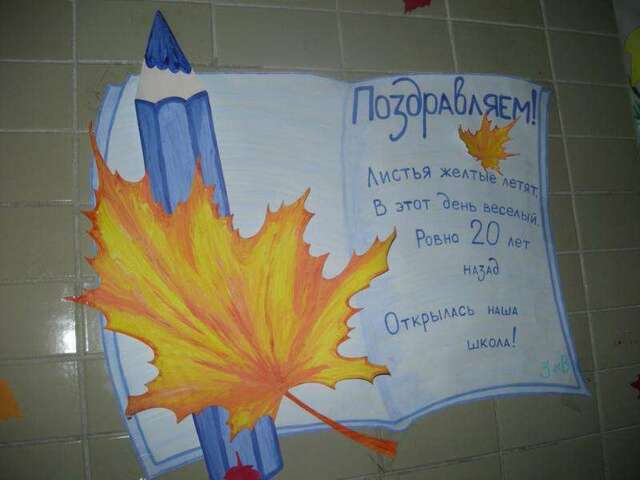 Поздравляем!
Листья желтые летят,
В этот день веселый.
Ровно 20 лет
назад
Открылась наша
школа!